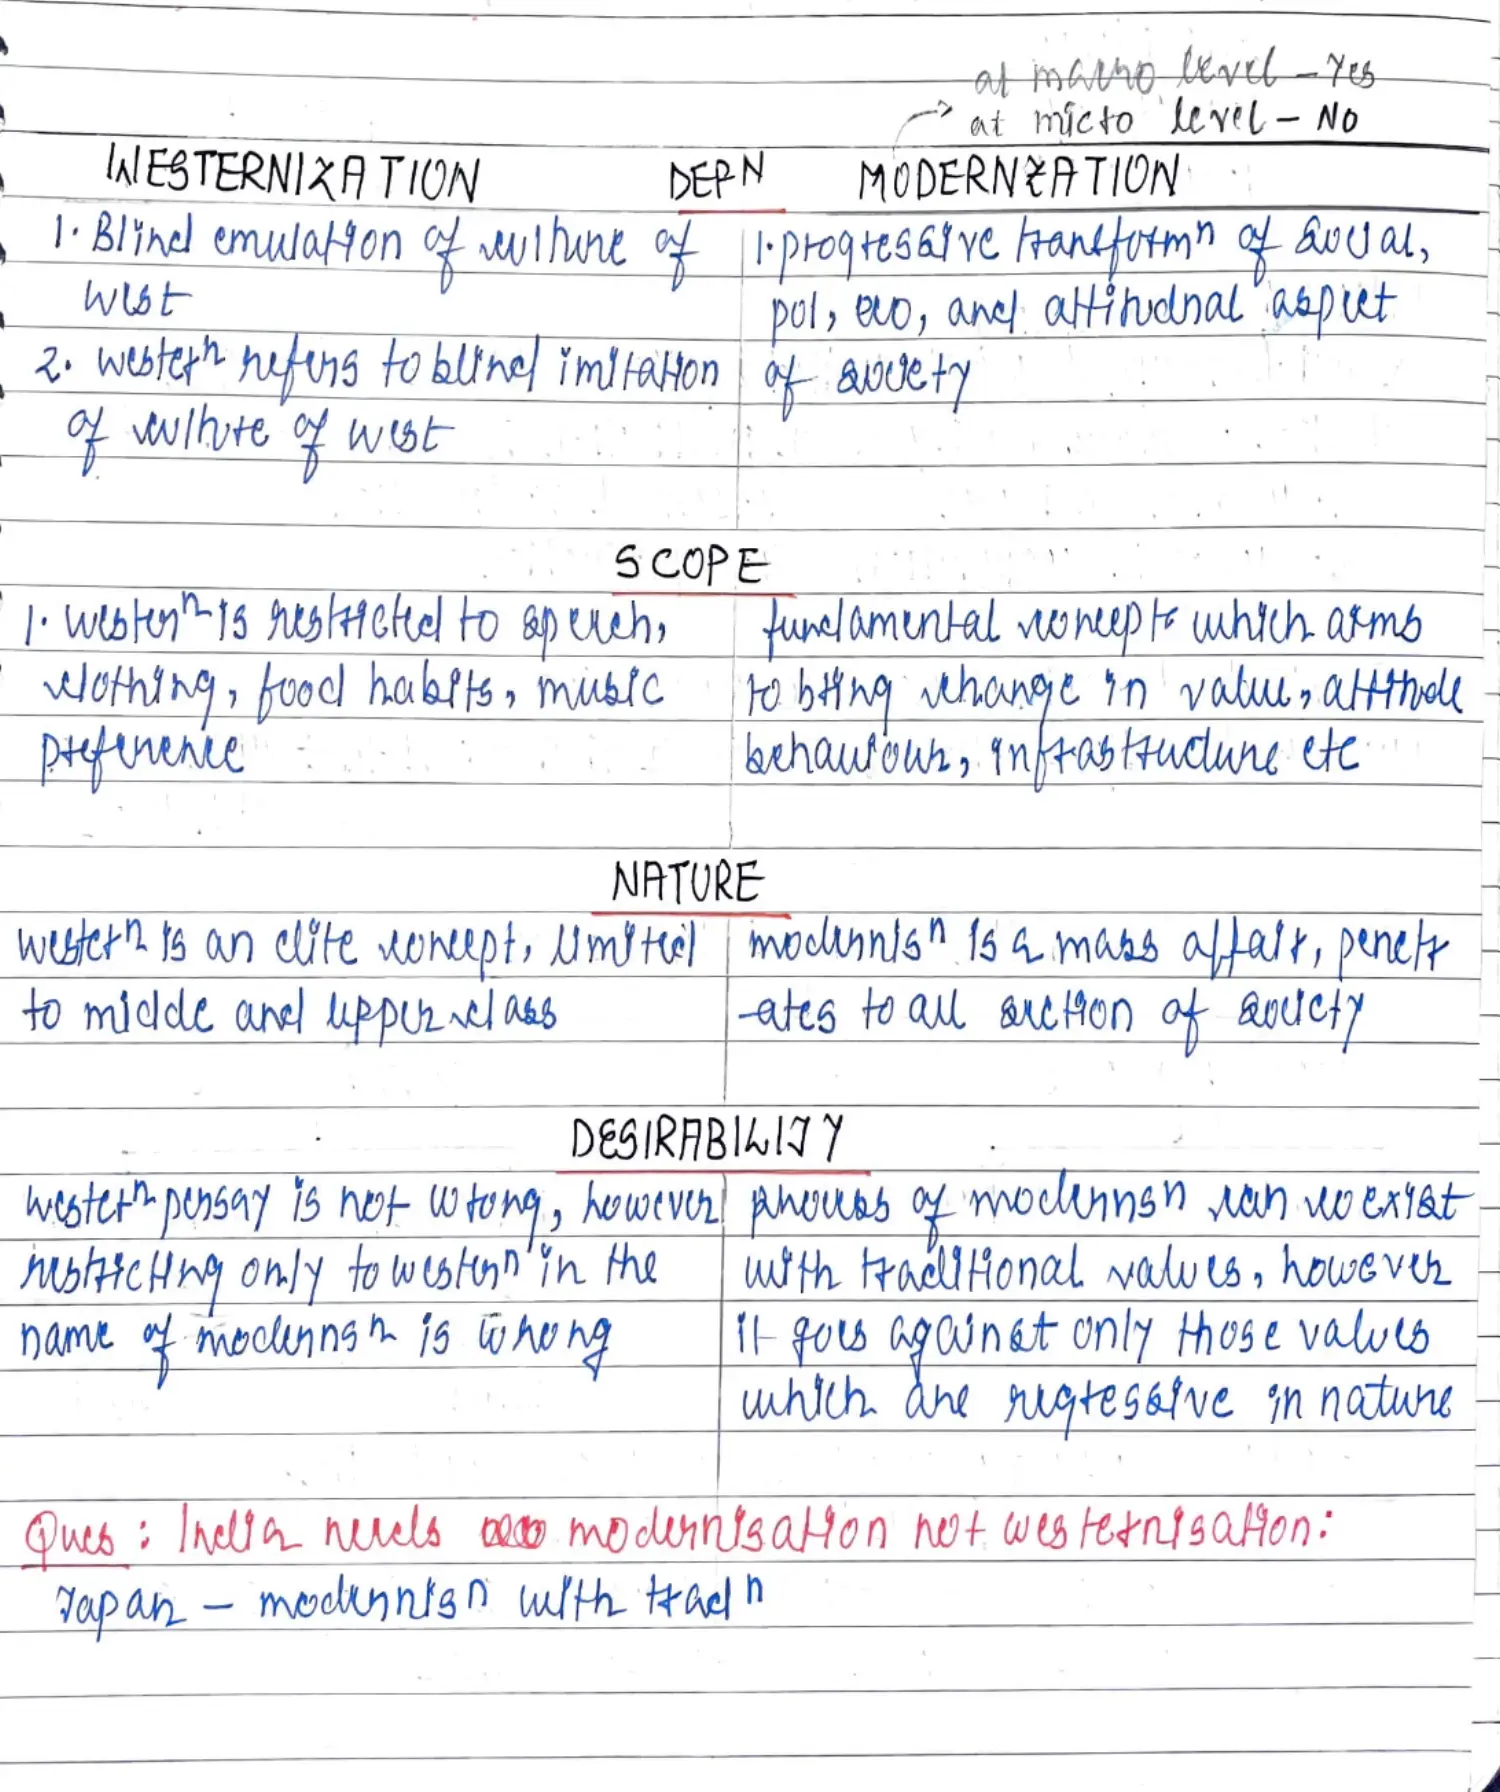 at macro level - Yes
at micro level - No
WESTERNIZATION DEFN MODERNZATION
1. Blind emulation of culture of
west
2. westerⁿ refers to blind imitation
of culture of west
1. progressive transformⁿ of social,
pol, eco, and attitudnal aspect
of society
SCOPE
1. westerⁿ is restricted to speech,
clothing, food habits, music
preference
fundamental concept which aims
to bring change in value, attitude
behaviour, infrastructure etc
NATURE
westerⁿ is an elite concept, limited
to middle and upper class
modernisⁿ is a mass affair, penetr
-ates to all section of society
DESIRABILITY
westerⁿ persay is not wrong, however
restricting only to westernⁿ in the
name of modernnsⁿ is wrong
process of modernnsⁿ can coexist
with traditional values, however
it goes against only those values
which are regressive in nature
Ques : India needs modernisation not westernisation:
Japan - modernnisⁿ with tradⁿ